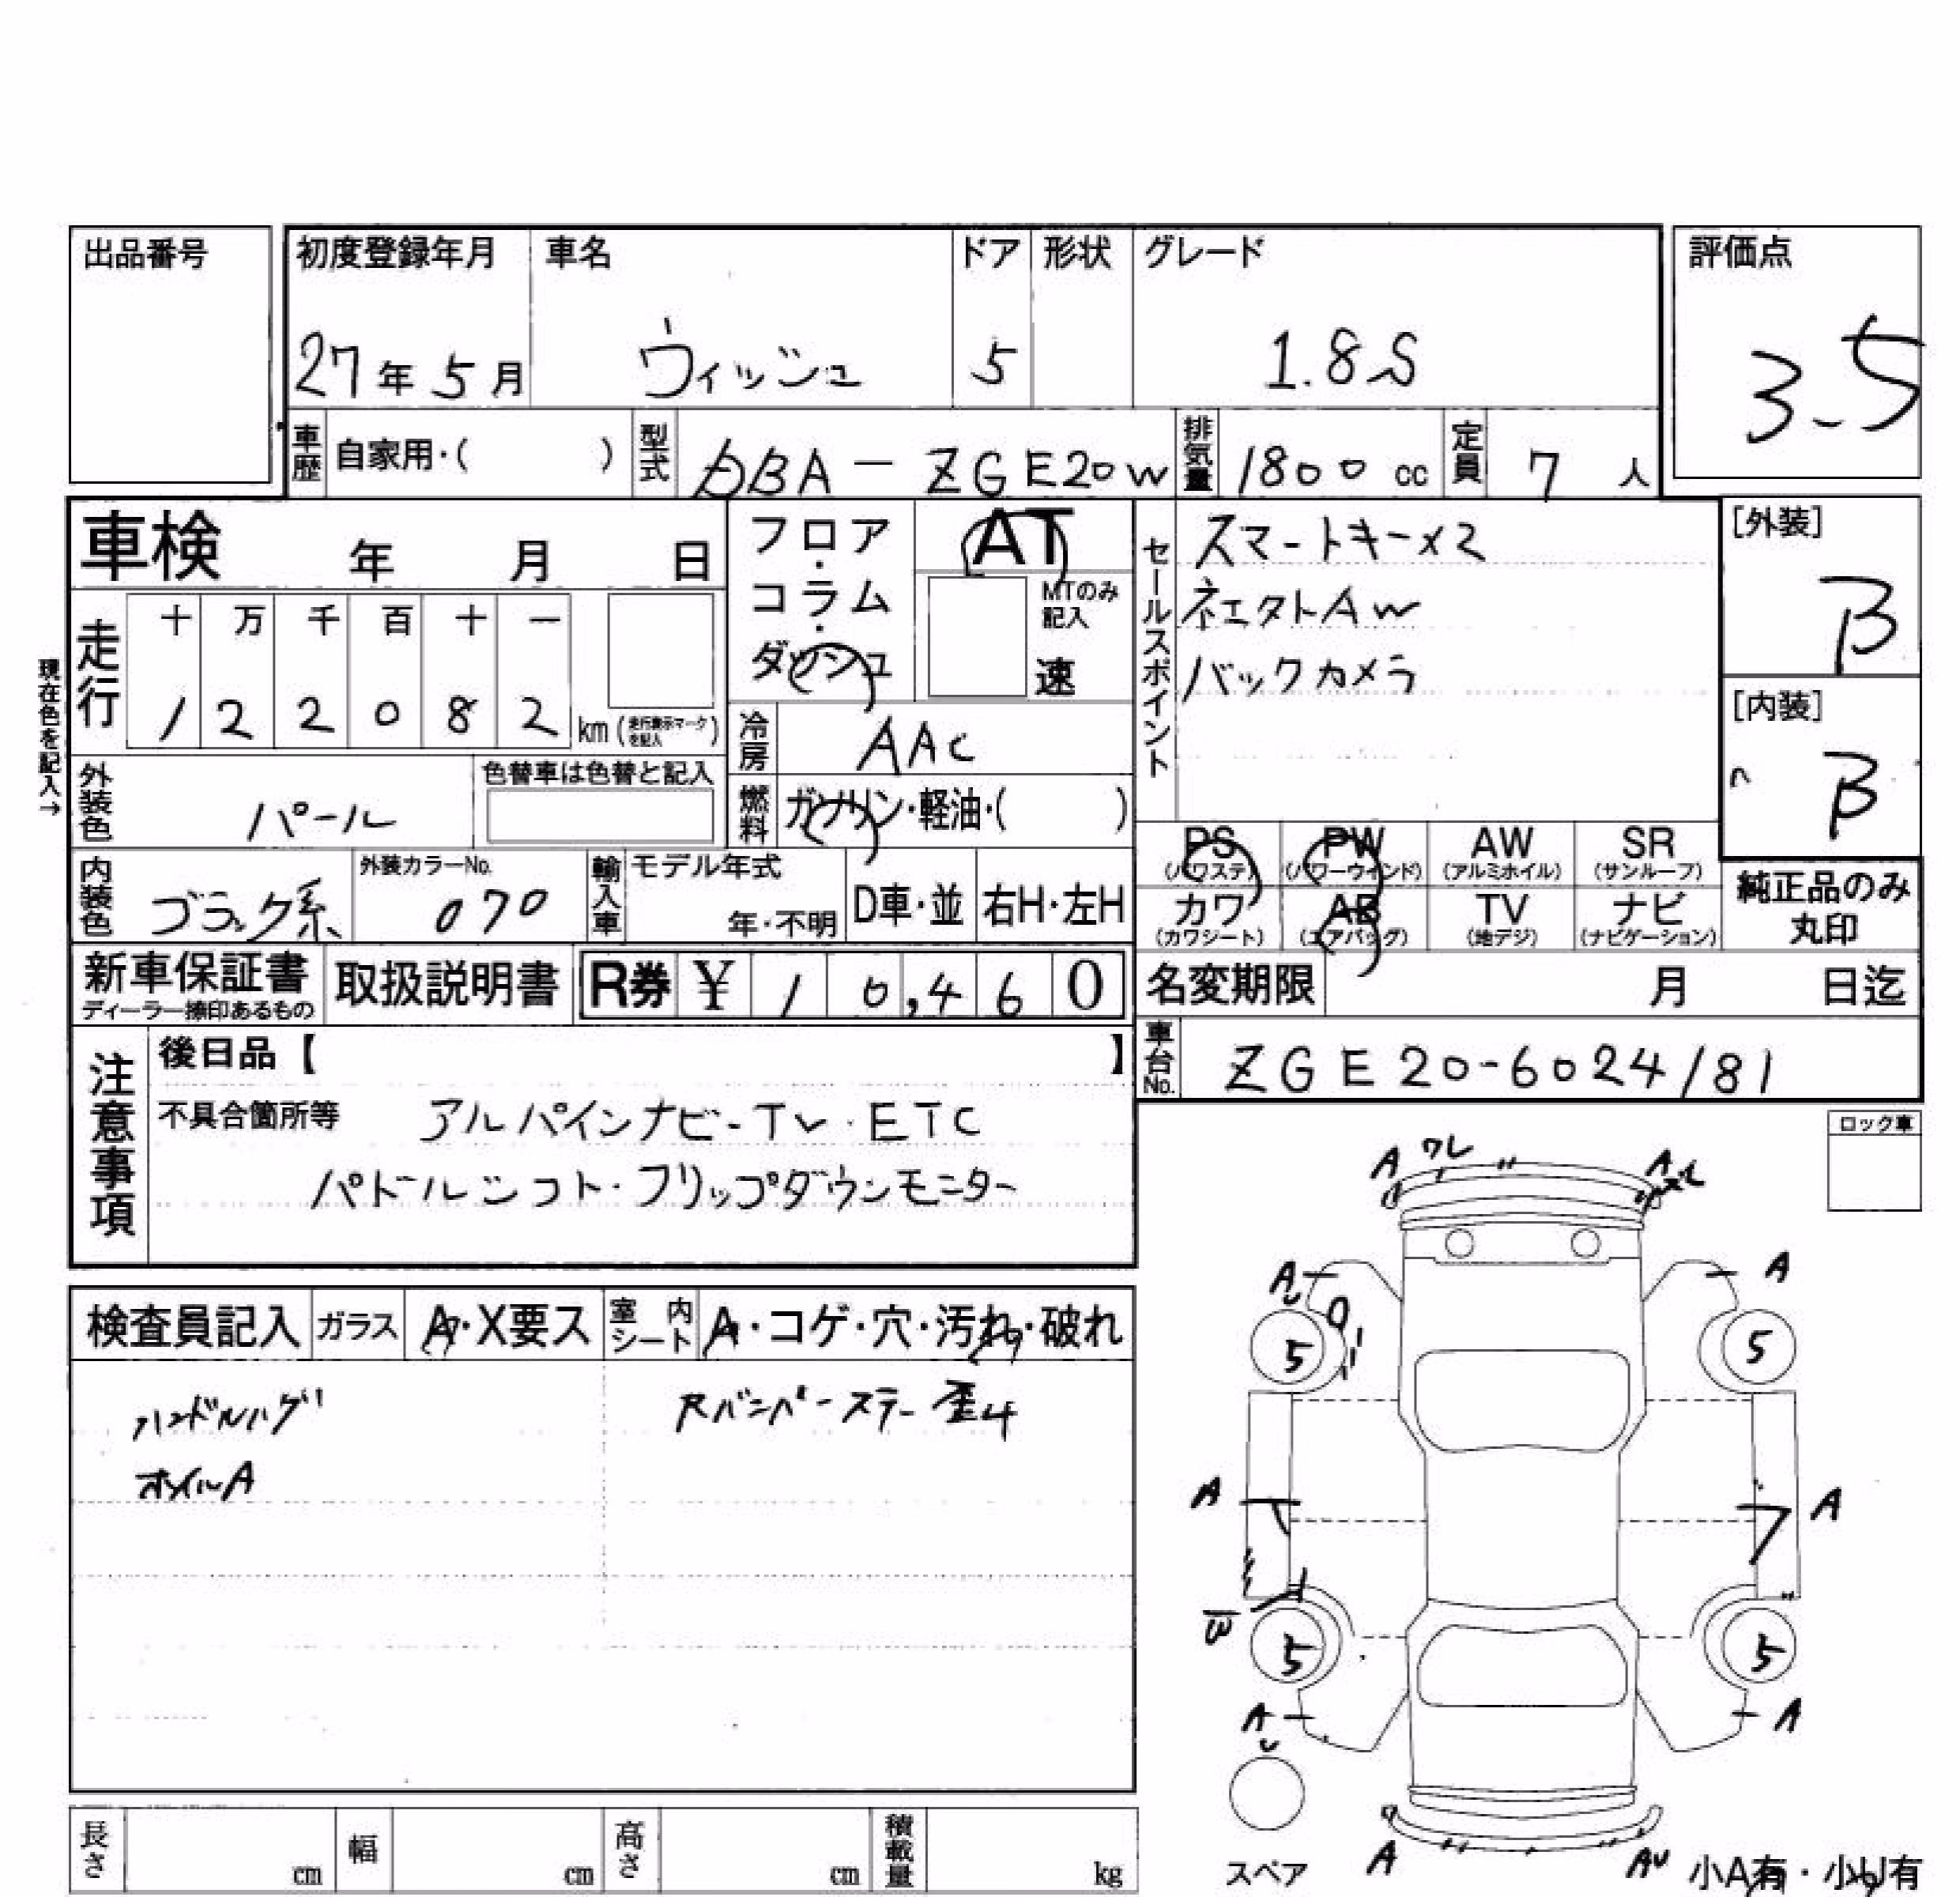 出品番号
初度登録年月 車名 ドア 形状 グレード 評価点
27年5月 ウィッシュ 5 1.8S 3.5
車歴 自家用・( ) 型式 DBA-ZGE20W 排気量 1800cc 定員 7人
車検 年 月 日
フロア・コラム・ダッシュ AT
MTのみ記入
速
セールスポイント
スマートキー×2
AW
バックカメラ
[外装]
B
[内装]
B
現在色を記入→
走行 十 万 千 百 十 一
1 2 2 0 8 2 km (走行表示マークを記入)
冷房 AAC
外装色 パール 色替車は色替と記入
燃料 ガソリン・軽油・( )
PS (パワステ) PW (パワーウインド) AW (アルミホイル) SR (サンルーフ)
カワ (カワシート) AB (エアバッグ) TV (地デジ) ナビ (ナビゲーション)
純正品のみ丸印
内装色 ブラック系 外装カラーNo. 070 輸入車 モデル年式 年・不明 D車・並 右H・左H
新車保証書 ディーラー捺印あるもの 取扱説明書 R券 ¥ 1 0,4 6 0
名変期限 月 日迄
車台No. ZGE20-6024181
注意事項
後日品【 】
不具合箇所等 アルパインナビ-TV・ETC
パドルシフト・フリップダウンモニター
ロック車
検査員記入 ガラス A・X要ス 室内シート A・コゲ・穴・汚れ・破れ
ハンドルハゲ
バンパーステー
ホイルA
A ワレ A
A A
5 5
A A
5 5
A A
スペア
A AU
小A有・小U有
長さ cm 幅 cm 高さ cm 積載量 kg